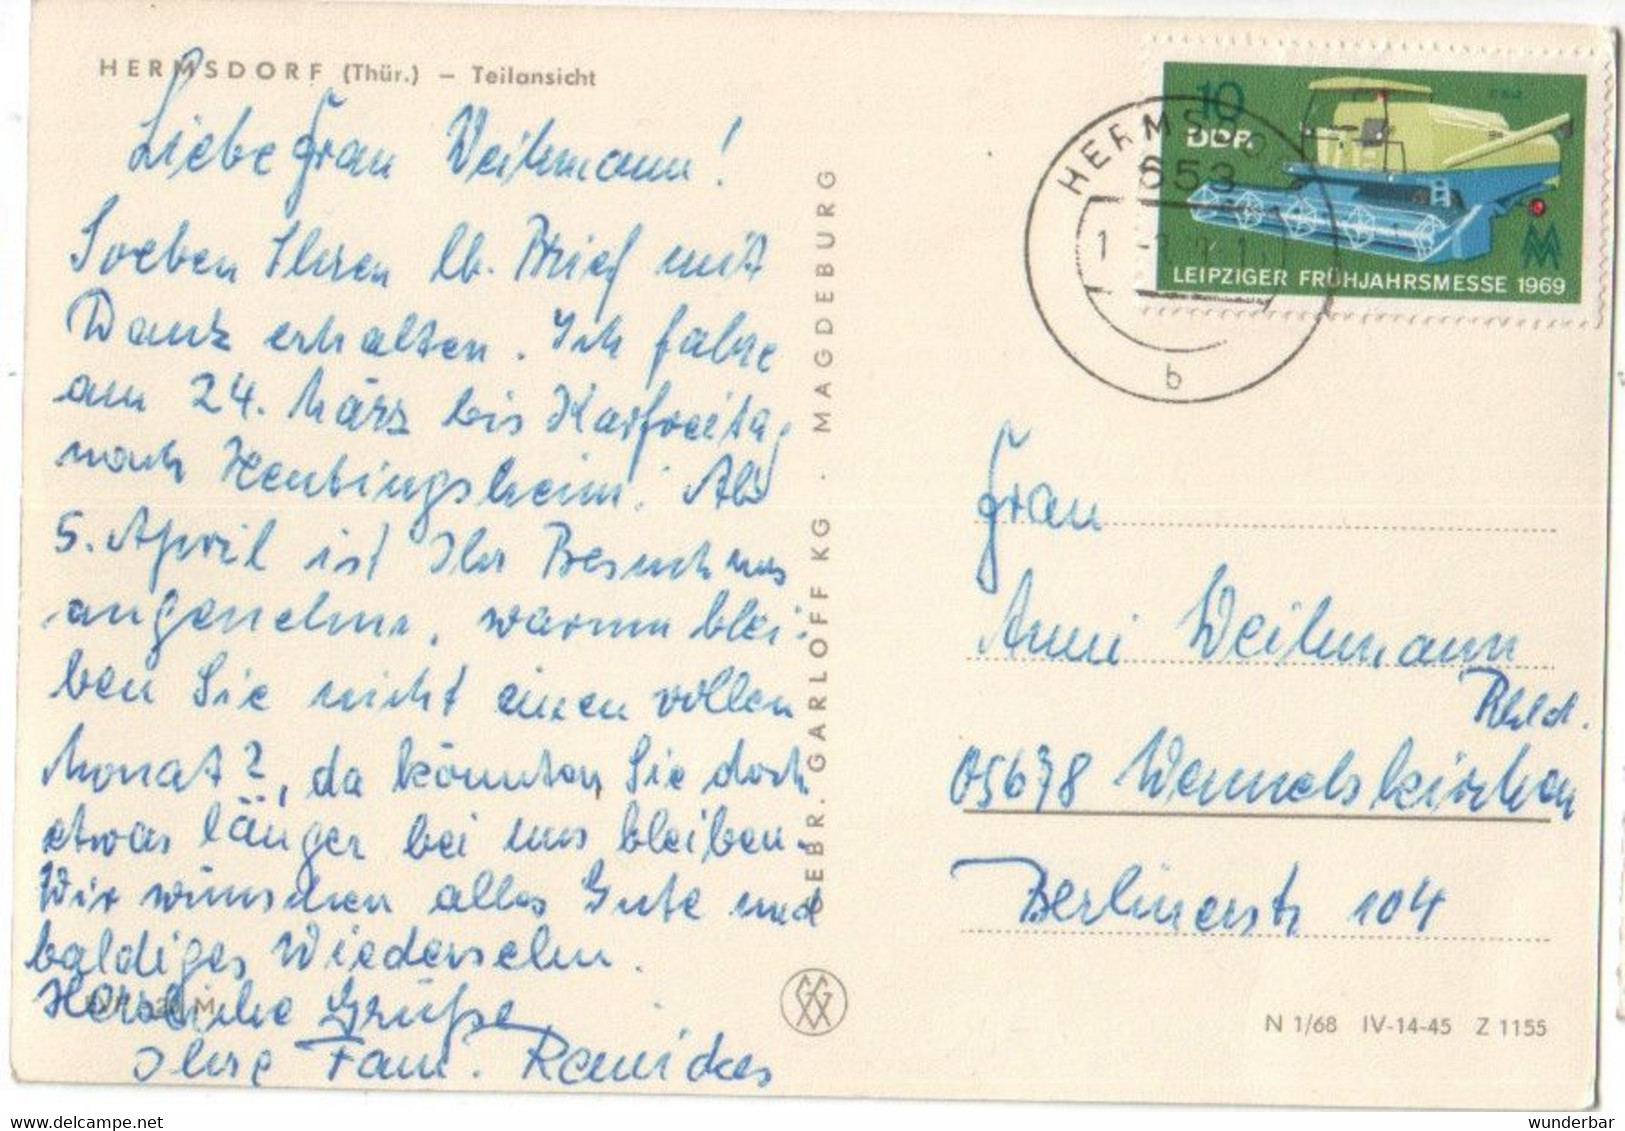 HERMSDORF (Thür.) — Teilansicht
Liebe Frau Weihmann!
Soeben Ihren lb. Brief mit
Dank erhalten. Ich fahre
am 24. März bis Karfreitag
nach Heubingsheim. Ab
5. April ist Ihr Besuch uns
angenehm, warum blei-
ben Sie nicht einen vollen
Monat?, da könnten Sie doch
etwas länger bei uns bleiben.
Wir wünschen alles Gute und
baldiges Wiedersehn.
Herzliche Grüße
Ihre Fam.
GEBR. GARLOFF KG · MAGDEBURG
10
DDR
LEIPZIGER FRÜHJAHRSMESSE 1969
HERMSDO
653
b
Frau
Anni Weihmann
Rhld.
05678 Wermelskirchen
Berlinerstr 104
N 1/68 IV-14-45 Z 1155
wunderbar